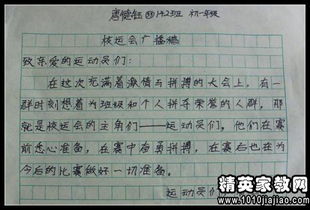 唐健钰 1423班 初一年级
校运会广播稿
致亲爱的运动员们:
在这次充满着激情与拼搏的大会上,有一
群时刻想着为班级和个人拼夺荣誉的人群。那
就是校运会的主角们——运动员们。他们在赛
前悉心准备,在赛中奋勇拼搏,在赛后也在为
今后的比赛做好一切准备。
运动员
精英家教网
www.1010jiajiao.com